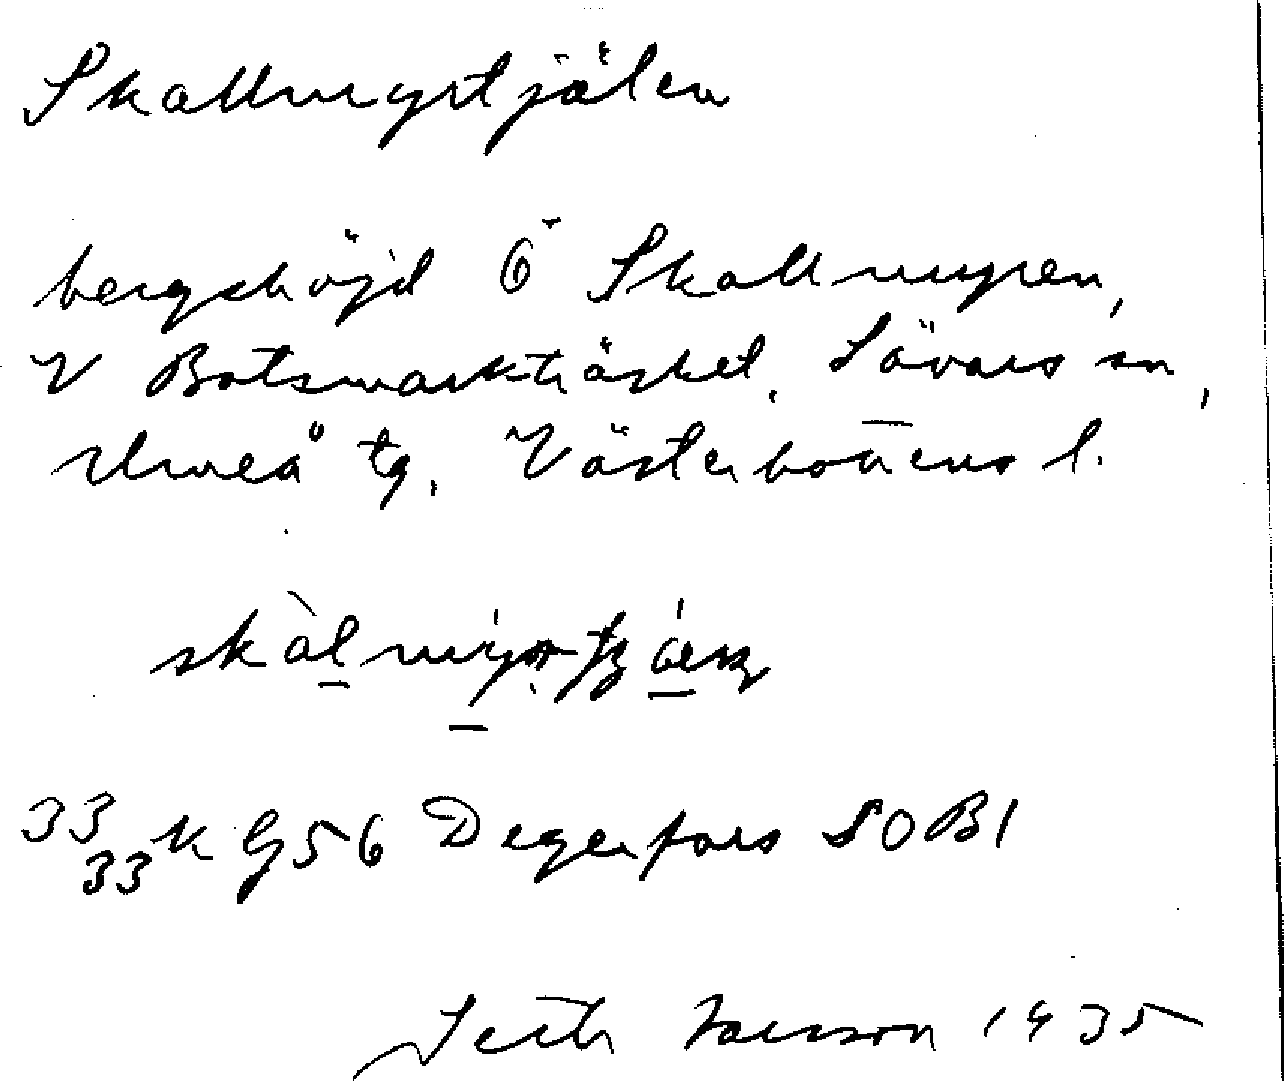 Skallmyrtjälen
bergshöjd Ö Skallmyren,
V Botsmarkträsket, Sävars sn,
Umeå tg, Västerbottens l.
33 33 K G56 Degerfors SO Bl
Seth Larsson 1935